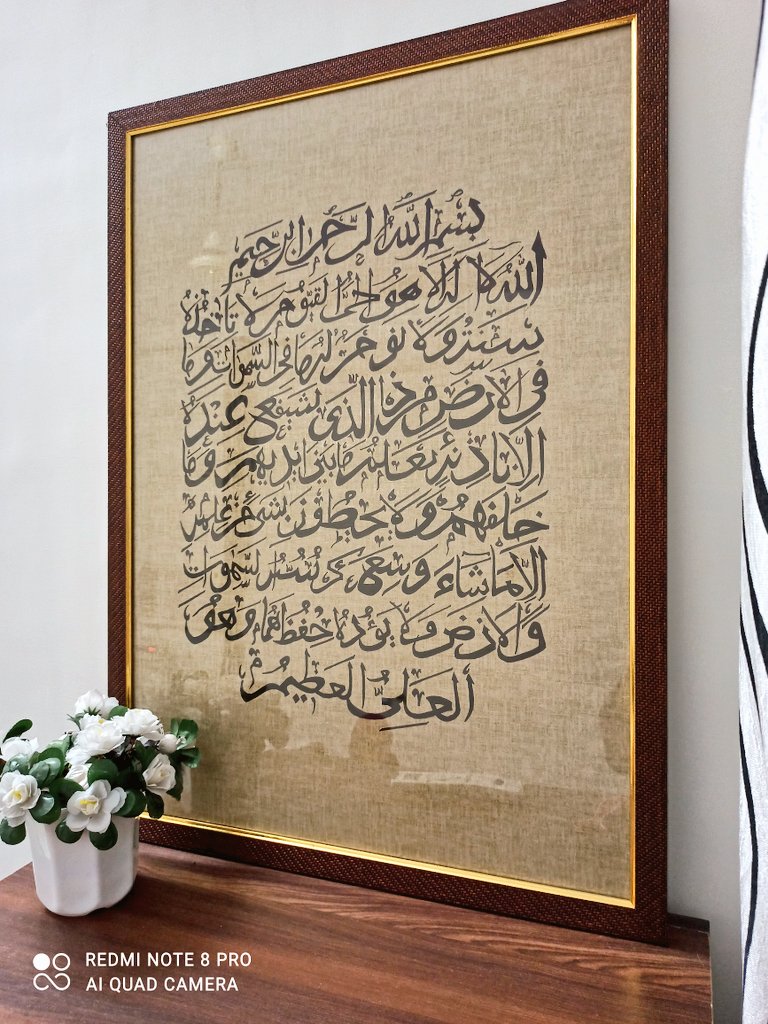 بسم الله الرحمن الرحيم
الله لا اله الا هو الحي القيوم لا تاخذه
سنة ولا نوم له ما في السموات وما
في الارض من ذا الذي يشفع عنده
الا باذنه يعلم ما بين ايديهم وما
خلفهم ولا يحيطون بشيء من علمه
الا بما شاء وسع كرسيه السموات
والارض ولا يؤده حفظهما وهو
العلي العظيم
REDMI NOTE 8 PRO
AI QUAD CAMERA